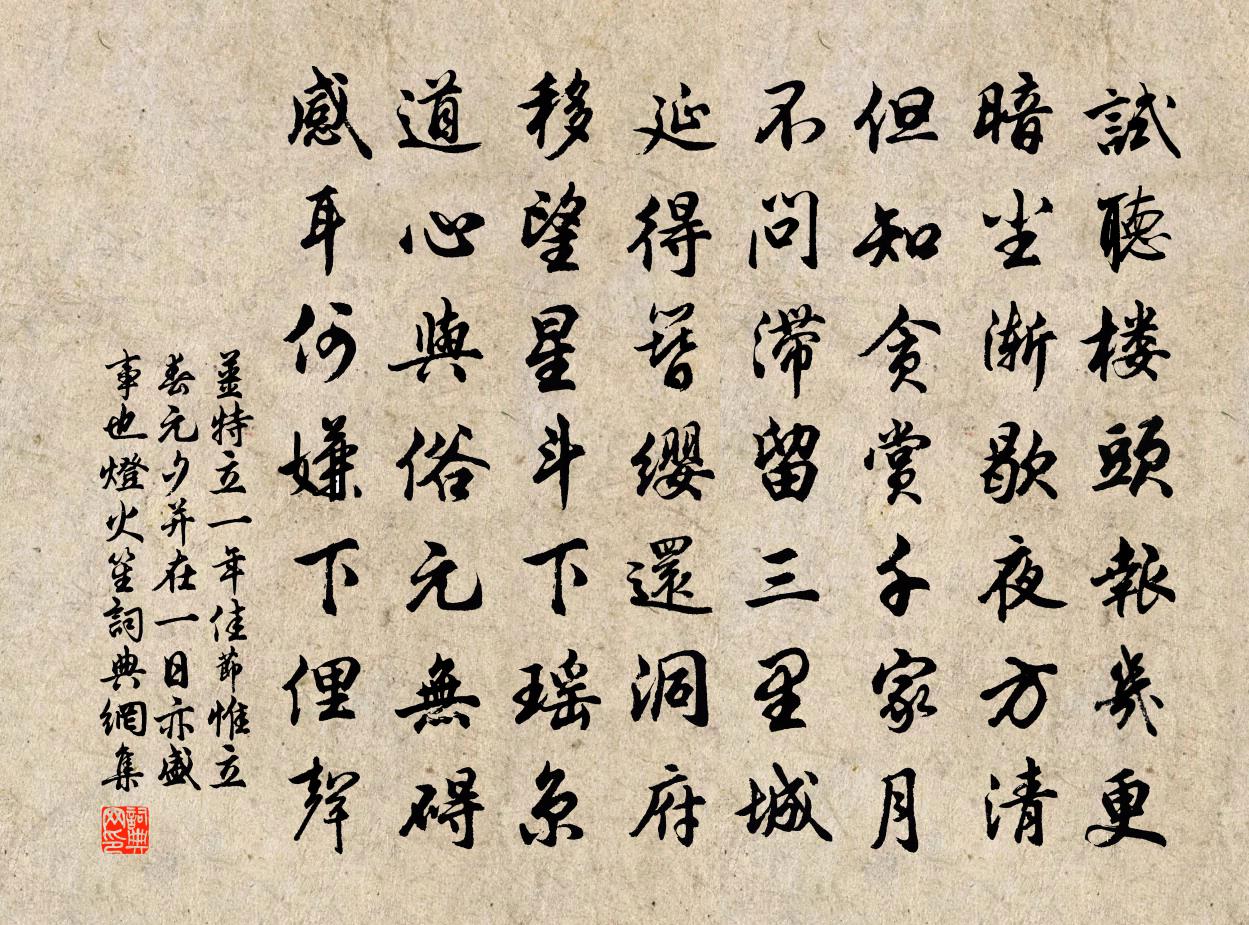 試聽樓頭報幾更
暗尘漸歇夜方清
但知貪賞千家月
不問滯留三里城
延得簪纓還洞府
移望星斗下瑶京
道心與俗元無碍
感耳何嫌下俚聲
姜特立一年佳節惟立
春元夕并在一日亦盛
事也燈火笙詞典網集
詞典网印